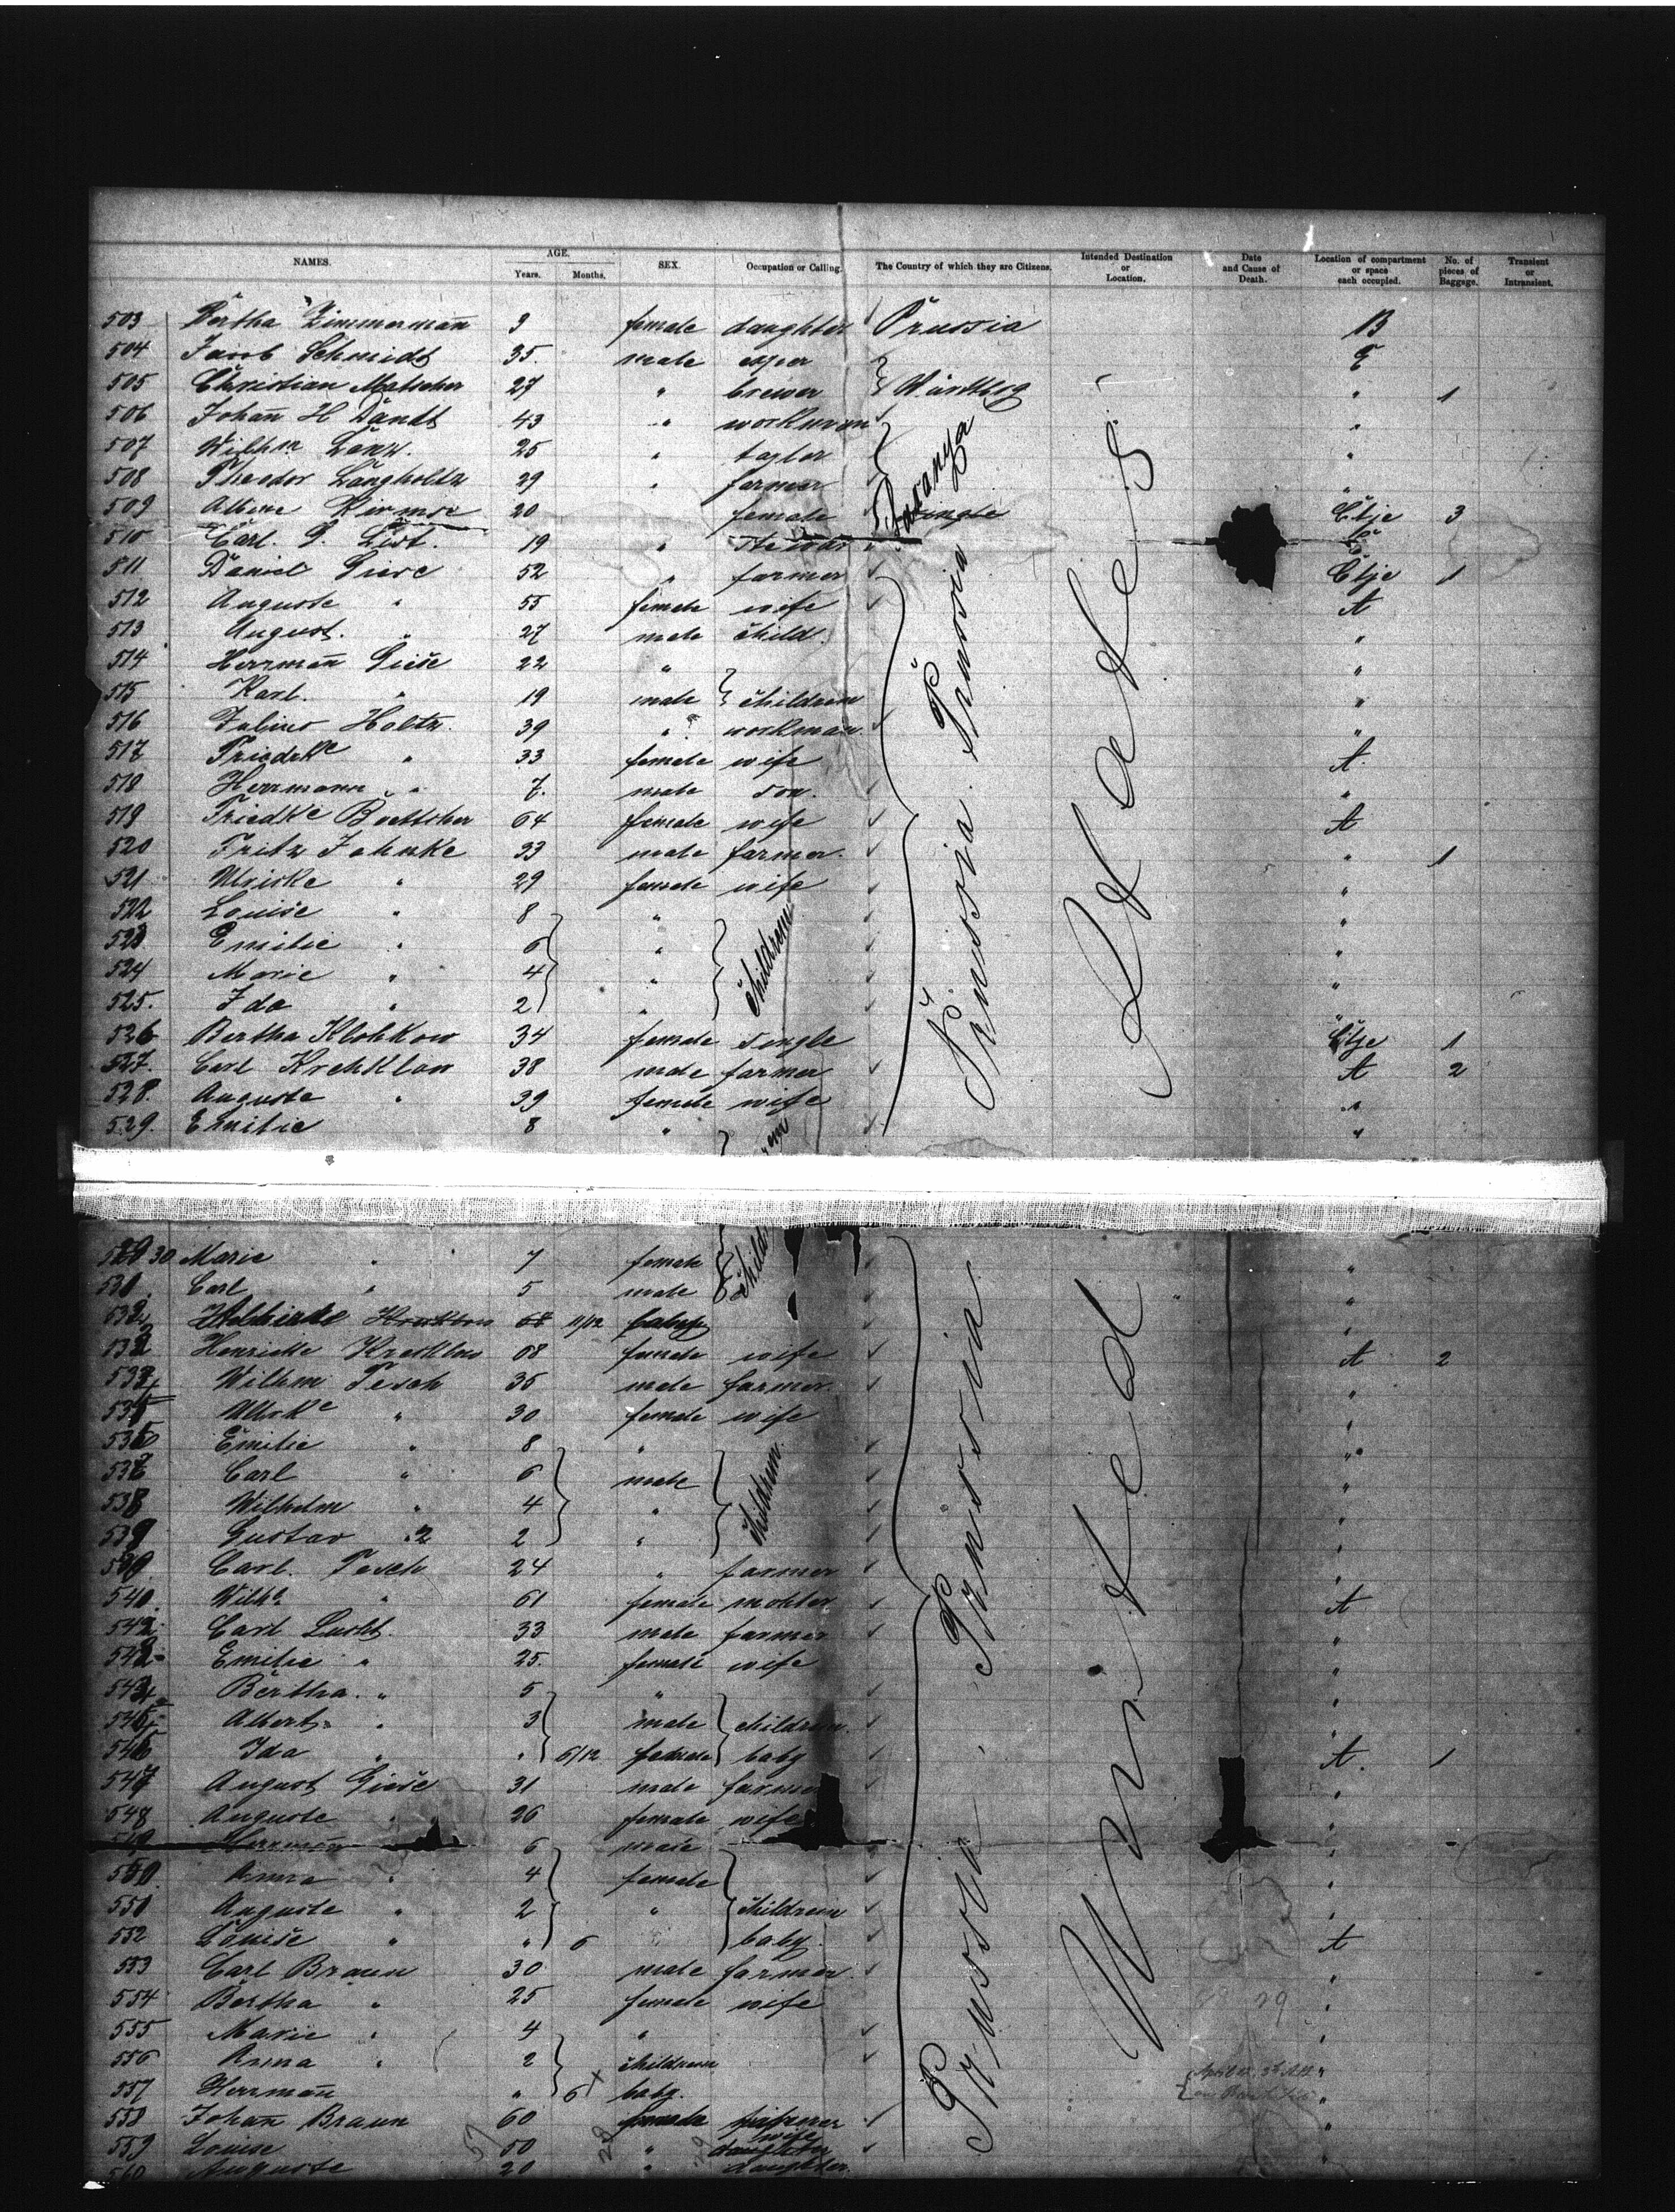 NAMES. AGE. SEX. Occupation or Calling. The Country of which they are Citizens. Intended Destination or Location. Date and Cause of Death. Location of compartment or space each occupied. No. of pieces of Baggage. Transient or Intransient.
Years. Months.
503 Bertha Zimmermañ 9 female daughter Prussia B
504 Jacob Schmidt 35 male E
505 Christian 27 " brewer " 1
506 Johañ H Dandt 43 " workman "
507 Wilhm 25 " taylor "
508 Theodor Langholtz 29 " farmer "
509 20 female single Ctje 3
510 Carl. G. List. 19 "
511 Daniel Giese 52 " farmer Ctje 1
512 Auguste " 55 female wife A
513 August. " 27 male child. "
514 Herrmañ Giese 22 " "
515 Karl. " 19 male children "
516 Julius Holtz 39 " workman "
517 Friedke " 33 female wife A
518 Herrmann " 7. male son. "
519 Friedke Boettcher 64 female wife A
520 Fritz Jahnke 33 male farmer. " 1
521 Ulrike " 29 female wife "
522 Louise " 8 " "
523 Emilie " 6 " children "
524 Marie " 4 " "
525. Ida " 2 " "
526 Bertha Klohkow 34 female single Ctje 1
527. Carl Krehklow 38 male farmer A 2
528. Auguste " 39 female wife "
529. Emilie 8 " "
Prussia. Prussia
States
30 Marie " 7 female "
531 Carl " 5 male "
532 11/12 baby "
Henriette Kreklow 68 female wife A 2
Wilhm Tesch 35 male farmer. "
Ulrke " 30 female wife "
536 Emilie " 8 " "
537 Carl " 6 male children "
538 Wilhelm " 4 " "
539 Gustav " 2 2 " "
Carl. Tesch 24 " farmer "
540. Wilhe " 61 female mohter A
542 Carl Lucht. 33 male farmer "
Emilie " 25. female wife "
Bertha. " 5 " "
Albert " 3 male children "
546 Ida " " 6/12 female baby A. 1
547 August Giese 31 male farmer "
548 Auguste " 26 female wife "
549 Herrmañ 6 male "
550. Anna " 4 female "
551 Auguste " 2 " children "
552 Louise " " 6 baby. A
553 Carl Braun 30 male farmer. "
554 Bertha " 25 female wife "
555 Marie " 4 " "
556 Anna " 2 children "
557 Herrmañ " 6 baby. "
558 Johañ Braun 60 farmer "
559 Louise 50 " wife daughter "
560 Auguste 20 " daughter.
Prussia. Prussia
United